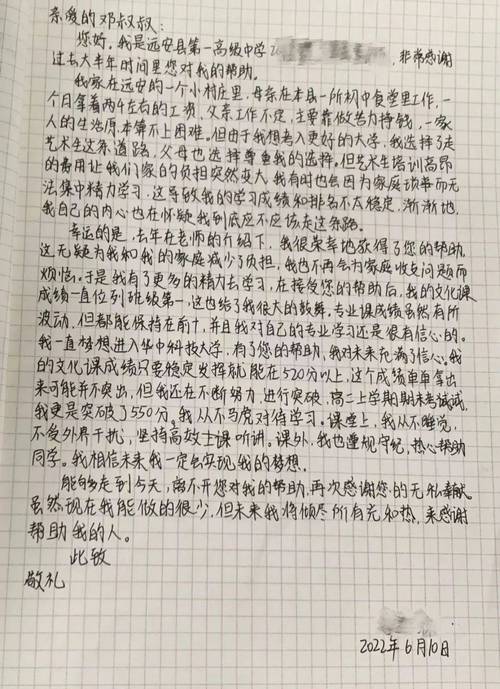 亲爱的邓叔叔：
您好。我是远安县第一高级中学 ，非常感谢
过去大半年时间里您对我的帮助。
我家在远安的一个小村庄里，母亲在本县一所初中食堂里工作，一
个月拿着两千左右的工资，父亲工作不定，主要靠做苦力挣钱，一家
人的生活原本算不上困难。但由于我想考入更好的大学，我选择了走
艺术生这条道路，父母也选择尊重我的选择。但艺术生培训高昂
的费用让我们家的负担突然变大，我有时也会因为家庭琐事而无
法集中精力学习，这导致我的学习成绩和排名不太稳定，渐渐地，
我自己的内心也在怀疑我到底应不应该走这条路。
幸运的是，去年在老师的介绍下，我很荣幸地获得了您的帮助，
这无疑为我和我的家庭减少了负担，我也不再会为家庭收支问题而
烦恼。于是我有了更多的精力去学习，在接受您的帮助后，我的文化课
成绩一直位列班级第一，这也给了我很大的鼓舞。专业课成绩虽然有所
波动，但都能保持在前十，并且我对自己的专业学习还是很有信心的。
我一直梦想进入华中科技大学，有了您的帮助，我对未来充满了信心。我
的文化课成绩只要稳定发挥就能在520分以上，这个成绩单单拿出
来可能并不突出，但我还在不断努力，进行突破，高二上学期期末考试试，
我更是突破了550分，我从不马虎对待学习。课堂上，我从不睡觉，
不受外界干扰，坚持高效上课听讲。课外，我也遵规守纪，热心帮助
同学。我相信未来我一定会实现我的梦想。
能够走到今天，离不开您对我的帮助，再次感谢您的无私奉献。
虽然现在我能做的很少，但未来我将倾尽所有光和热，来感谢
帮助我的人。
此致
敬礼
2022年6月10日